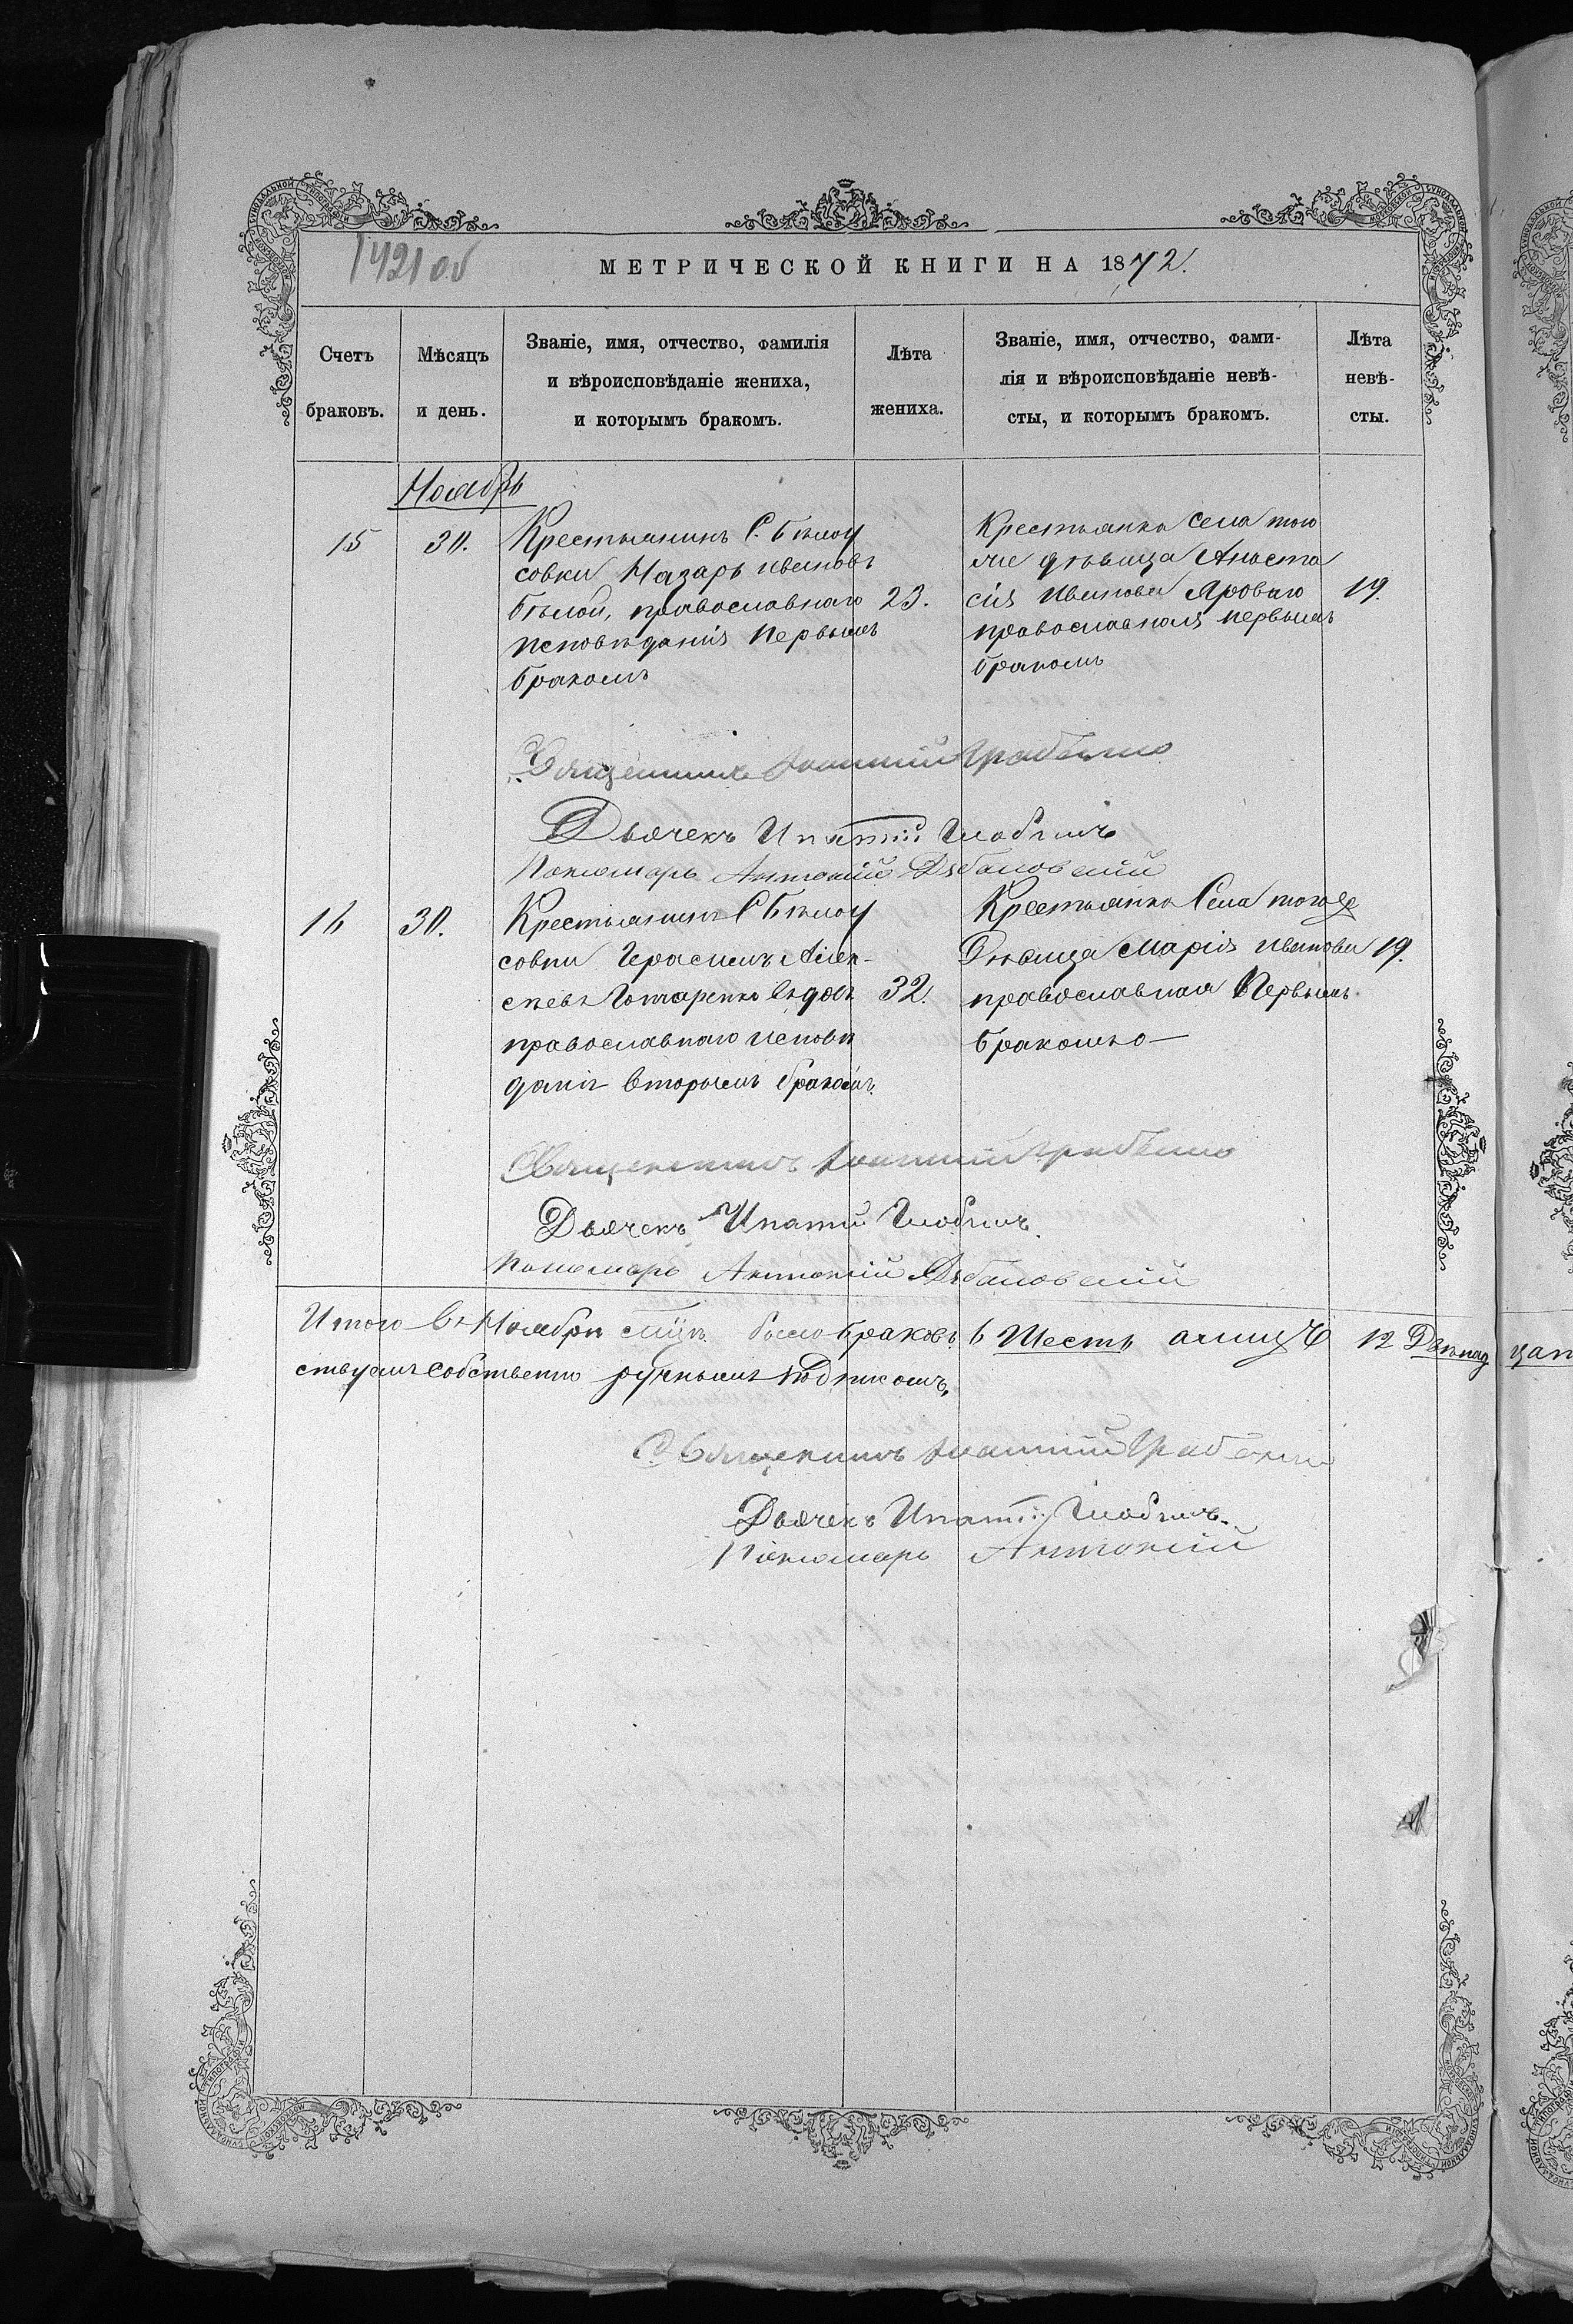 1421 об
МЕТРИЧЕСКОЙ КНИГИ НА 1872.
Счетъ браковъ.
Мѣсяцъ и день.
Званіе, имя, отчество, фамилія
и вѣроисповѣданіе жениха,
и которымъ бракомъ.
Лѣта жениха.
Званіе, имя, отчество, фами-
лія и вѣроисповѣданіе невѣ-
сты, и которымъ бракомъ.
Лѣта невѣ-
сты.
Ноябрь
15
30.
Крестьянинъ С. Бѣлоу
совки Назаръ Ивановъ
Бѣлой, православнаго
исповѣданія первымъ
бракомъ
23.
Крестьянка села того
же дѣвица Анаста
сія Иванова Яроваго
православная первымъ
бракомъ
19
Священникъ
Дьячекъ Ипатій
Пономарь Антоній
16
30.
Крестьянинъ С Бѣлоу
совки Герасимъ Алек-
сѣевъ вдовъ
православнаго исповѣ
данія вторымъ бракомъ.
32.
Крестьянка Села тогоже
Дѣвица Марія Иванова
православная Первымъ
бракомъ
19.
Священникъ
Дьячекъ Ипатій
Пономарь Антоній
Итого въ Ноябрѣ было браковъ 6 Шесть а лицъ 12 Двѣнад цат
ствуемъ собственно ручнымъ подписомъ.
Священникъ
Дьячекъ Ипатій
Пономарь Антоній